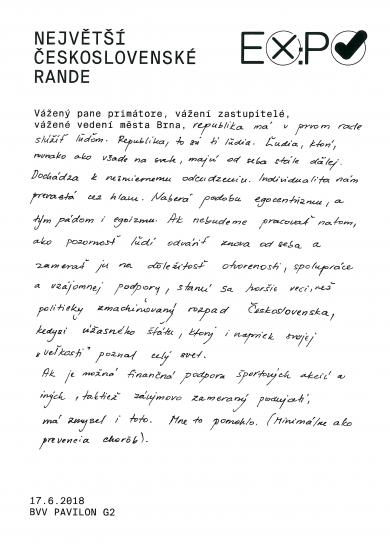 NEJVĚTŠÍ
ČESKOSLOVENSKÉ
RANDE
EX:PO
Vážený pane primátore, vážení zastupitelé,
vážené vedení města Brna, republika má v prvom rade
slúžiť ľuďom. Republika, to sú tí ľudia. Ľudia, ktorí,
rovnako ako všade na svete, majú od seba stále ďalej.
Dochádza k nesmiernemu odcudzeniu. Individualita nám
prerastá cez hlavu. Naberá podobu egocentrizmu, a
tým pádom i egoizmu. Ak nebudeme pracovať na tom,
ako pozornosť ľudí odvrátiť znova od seba a
zamerať ju na dôležitosť otvorenosti, spolupráce
a vzájomnej podpory, stanú sa horšie veci, než
politicky zmachinovaný rozpad Československa,
kedysi úžasného štátu, ktorý i napriek svojej
"veľkosti" poznal celý svet.
Ak je možná finančná podpora športových akcií a
iných, taktiež záujmovo zameraných podujatí,
má zmysel i toto. Mne to pomohlo. (Minimálne ako
prevencia chorôb).
17.6.2018
BVV PAVILON G2